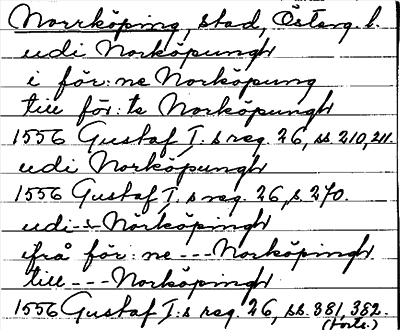 Norrköping, stad, Österg. l.
udi Norköpungh
i för:ne Norköpung
till för:te Norköpungh
1556 Gustaf I:s reg. 26, ss. 210, 211.
udi Norköpungh
1556 Gustaf I:s reg. 26, s. 270.
udi--- Norköpingh
ifrå för:ne --- Norköpingh
till --- Norköpingh
1556 Gustaf I:s reg. 26, ss. 381, 382.
(forts.)